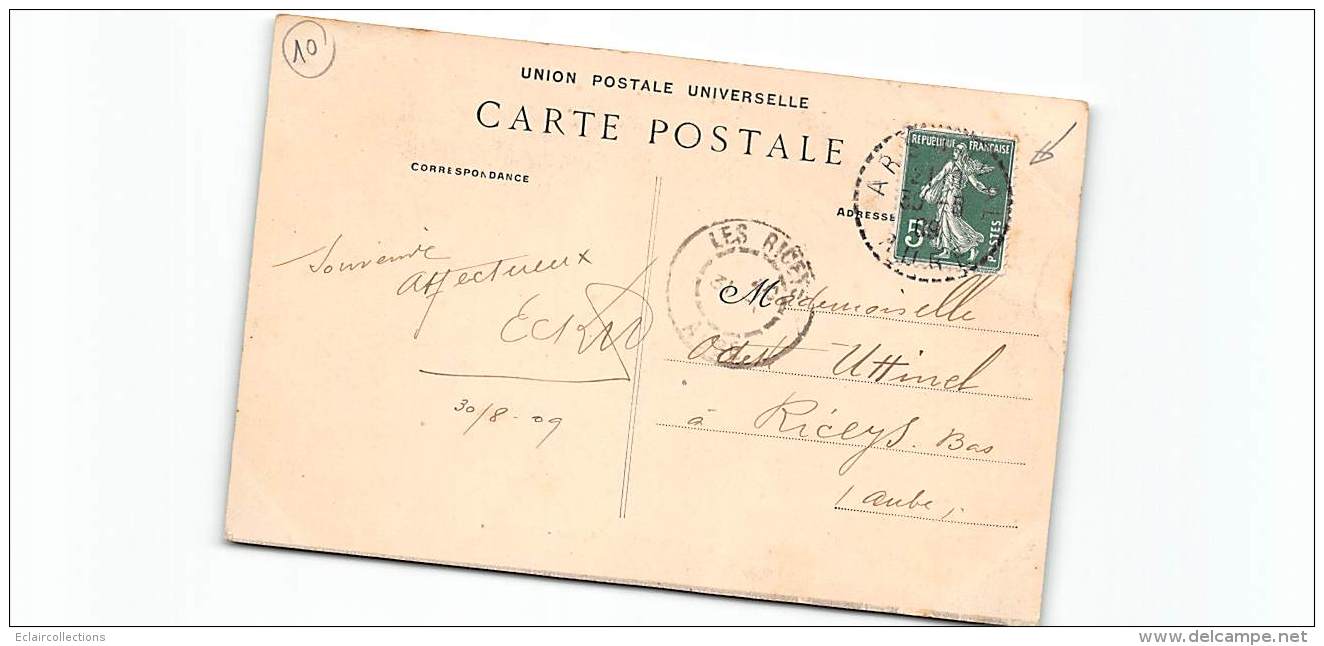 10
UNION POSTALE UNIVERSELLE
CARTE POSTALE
CORRESPONDANCE
ADRESSE
REPUBLIQUE FRANÇAISE
5
POSTES
09
LES RICEYS
Souvenir
Affectueux
30/8-09
Mademoiselle
Odette Uttinel
à Riceys. Bas
(Aube)
Eclaircollections
delcampe.net